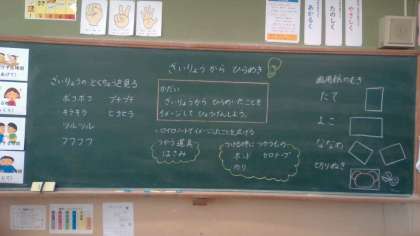 あかるく
たのしく
やさしく
ざいりょうから ひらめき
ざいりょうの とくちょうを見ろ
ボコボコ プチプチ
キラキラ ヒラヒラ
ツルツル
フワフワ
かだい
ざいりょうから ひらめいたことを
イメージして ひょうげんしよう。
ロイロノートでイメージしたことを広げる
つかう道具
はさみ
つける時につかうもの
ボンド セロテープ
のり
画用紙のむき
たて
よこ
ななめ
切りぬき